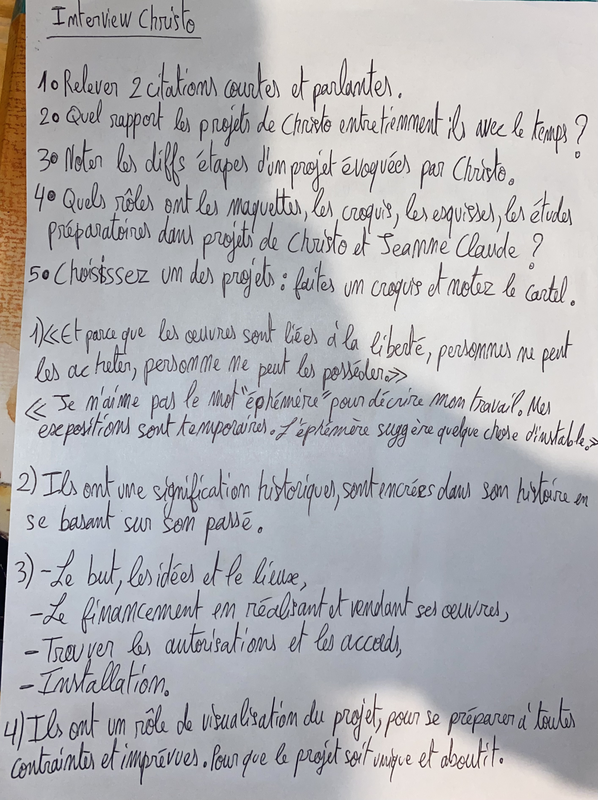 Interview Christo
1o Relever 2 citations courtes et parlantes.
2o Quel rapport les projets de Christo entretiennent ils avec le temps ?
3o Noter les diffs étapes d'un projet évoquées par Christo.
4o Quels rôles ont les maquettes, les croquis, les esquisses, les études
préparatoires dans projets de Christo et Jeanne Claude ?
5o Choisissez un des projets : faites un croquis et notez le cartel.
1) «Et parce que les œuvres sont liées à la liberté, personnes ne peut
les acheter, personne ne peut les posséder.»
« Je n'aime pas le mot "éphémère" pour décrire mon travail. Mes
expositions sont temporaires. L'éphémère suggère quelque chose d'instable.»
2) Ils ont une signification historiques, sont encrées dans son histoire en
se basant sur son passé.
3) - Le but, les idées et le lieux,
- Le financement en réalisant et vendant ses œuvres,
- Trouver les autorisations et les accords,
- Installation.
4) Ils ont un rôle de visualisation du projet, pour se préparer à toutes
contraintes et imprévues. Pour que le projet soit unique et aboutit.